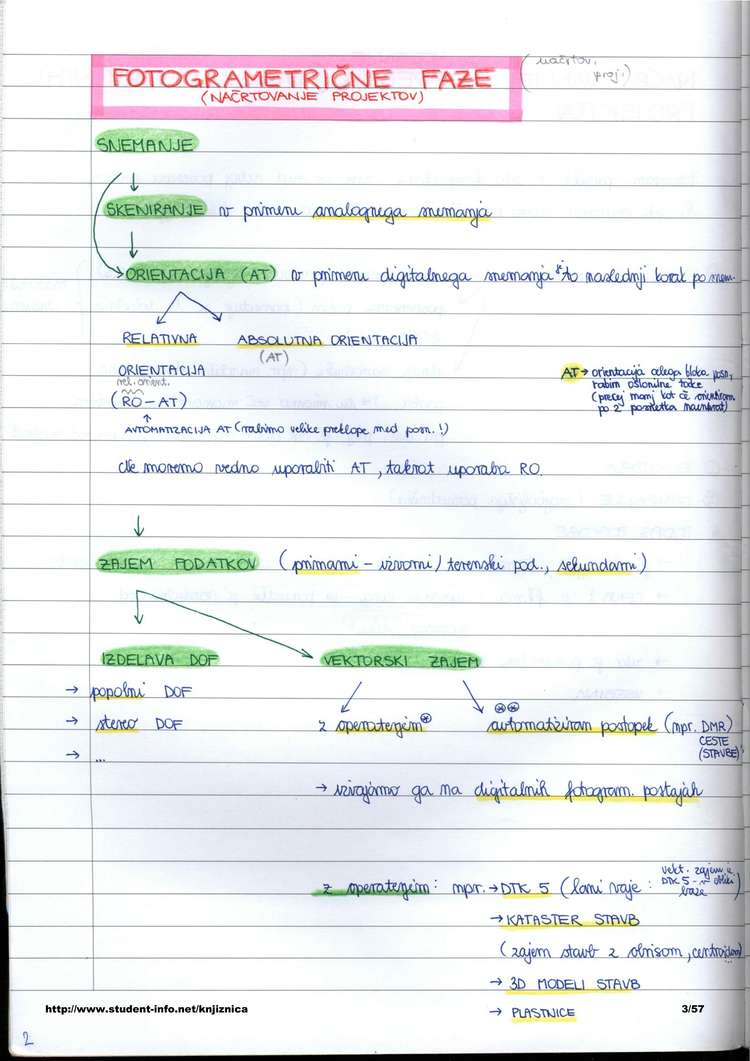 FOTOGRAMETRIČNE FAZE (načrtov. proj.)
(NAČRTOVANJE PROJEKTOV)
SNEMANJE
SKENIRANJE v primeru analognega snemanja
ORIENTACIJA (AT) v primeru digitalnega snemanja to naslednji korak po snem.
RELATIVNA ABSOLUTNA ORIENTACIJA
(AT)
ORIENTACIJA
rel. orient.
(RO-AT)
AT → orientacija celega bloka posn,
rabim oslonilne točke
(precej manj kot če orientiram
po 2 posnetka naenkrat)
AVTOMATIZACIJA AT (rabimo velike preklope med posn.!)
Če moremo vedno uporabiti AT, takrat uporaba RO.
ZAJEM PODATKOV (primarni - izvorni/terenski pod., sekundarni)
IZDELAVA DOF VEKTORSKI ZAJEM
→ popolni DOF
→ stereo DOF z operaterjem* avtomatiziran postopek** (npr. DMR)
CESTE
(STAVBE)
→ ...
→ izvajamo ga na digitalnih fotogram. postajah
z operaterjem: npr. → DTK 5 (lani vaje: vekt. zajem iz
DTK 5 - v obliki
baze)
→ KATASTER STAVB
(zajem stavb z obrisom, centroidom)
→ 3D MODELI STAVB
→ PLASTNICE
http://www.student-info.net/knjiznica 3/57
2